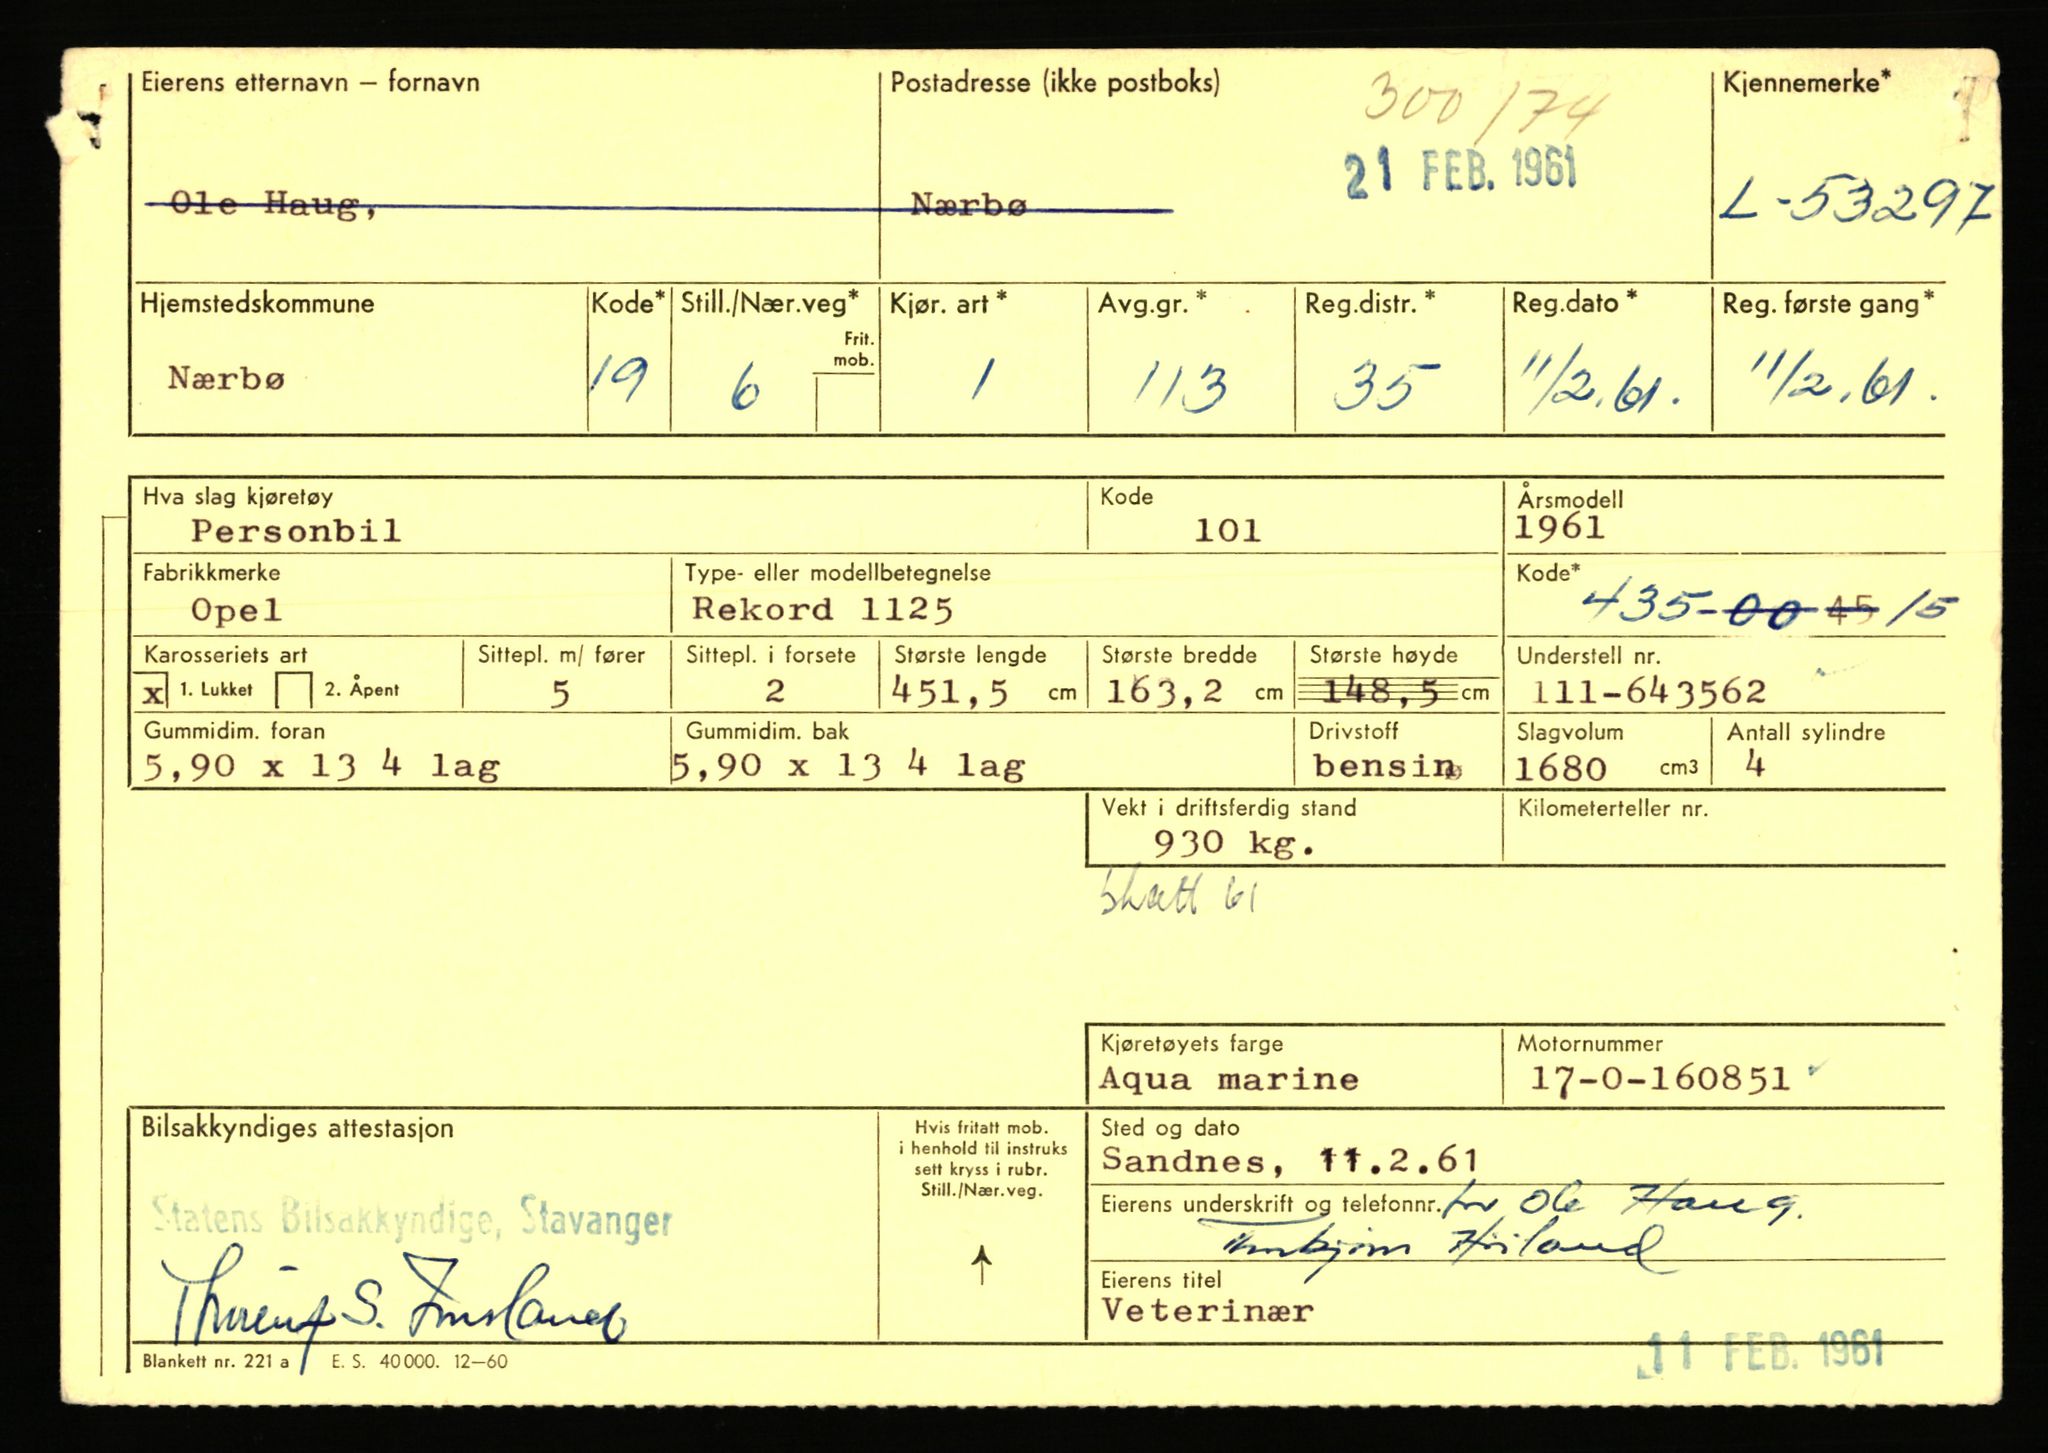 Eierens etternavn – fornavn
Postadresse (ikke postboks)
300/74
Kjennemerke*
21 FEB. 1961
Ole Haug,
Nærbø
L-53297
Hjemstedskommune
Kode*
Still./Nær.veg*
Kjør. art*
Avg.gr.*
Reg.distr.*
Reg.dato*
Reg. første gang*
Frit.
mob.
Nærbø
19
6
1
113
35
11/2.61.
11/2.61.
Hva slag kjøretøy
Kode
Årsmodell
Personbil
101
1961
Fabrikkmerke
Type- eller modellbetegnelse
Kode*
Opel
Rekord 1125
435-00 45 15
Karosseriets art
Sittepl. m/ fører
Sittepl. i forsete
Største lengde
Største bredde
Største høyde
Understell nr.
x 1. Lukket
2. Åpent
5
2
451,5 cm
163,2 cm
148,5 cm
111-643562
Gummidim. foran
Gummidim. bak
Drivstoff
Slagvolum
Antall sylindre
5,90 x 13 4 lag
5,90 x 13 4 lag
bensin
1680 cm3
4
Vekt i driftsferdig stand
Kilometerteller nr.
930 kg.
Skatt 61
Kjøretøyets farge
Motornummer
Aqua marine
17-0-160851
Bilsakkyndiges attestasjon
Hvis fritatt mob.
i henhold til instruks
sett kryss i rubr.
Still./Nær.veg.
Sted og dato
Sandnes, 11.2.61
Eierens underskrift og telefonnr. for Ole Haug.
Statens Bilsakkyndige, Stavanger
Eierens titel
Veterinær
11 FEB. 1961
Blankett nr. 221 a
E. S. 40000. 12–60